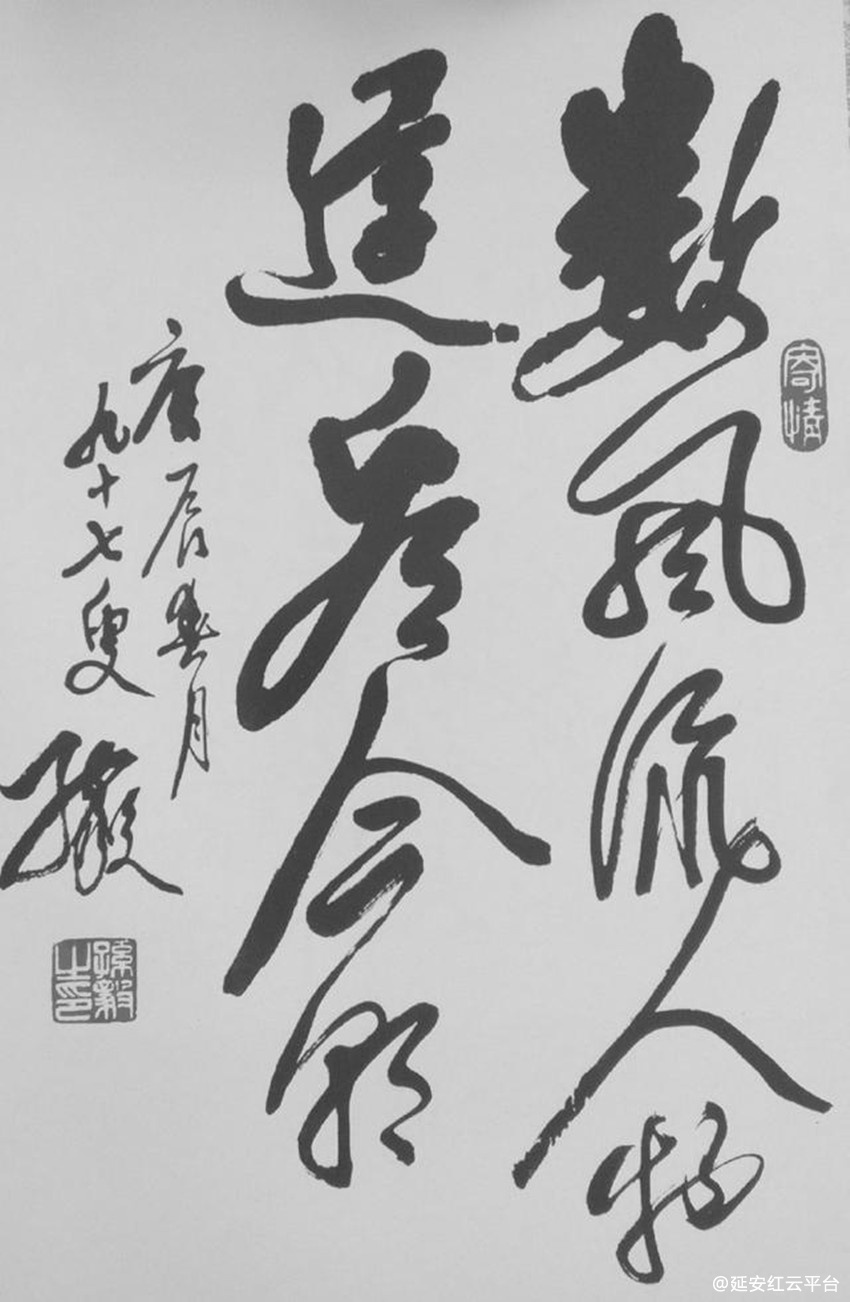 寄情
數風流人物
還看今朝
庚辰春月
九十七叟
孫毅
孫毅之印
@延安红云平台